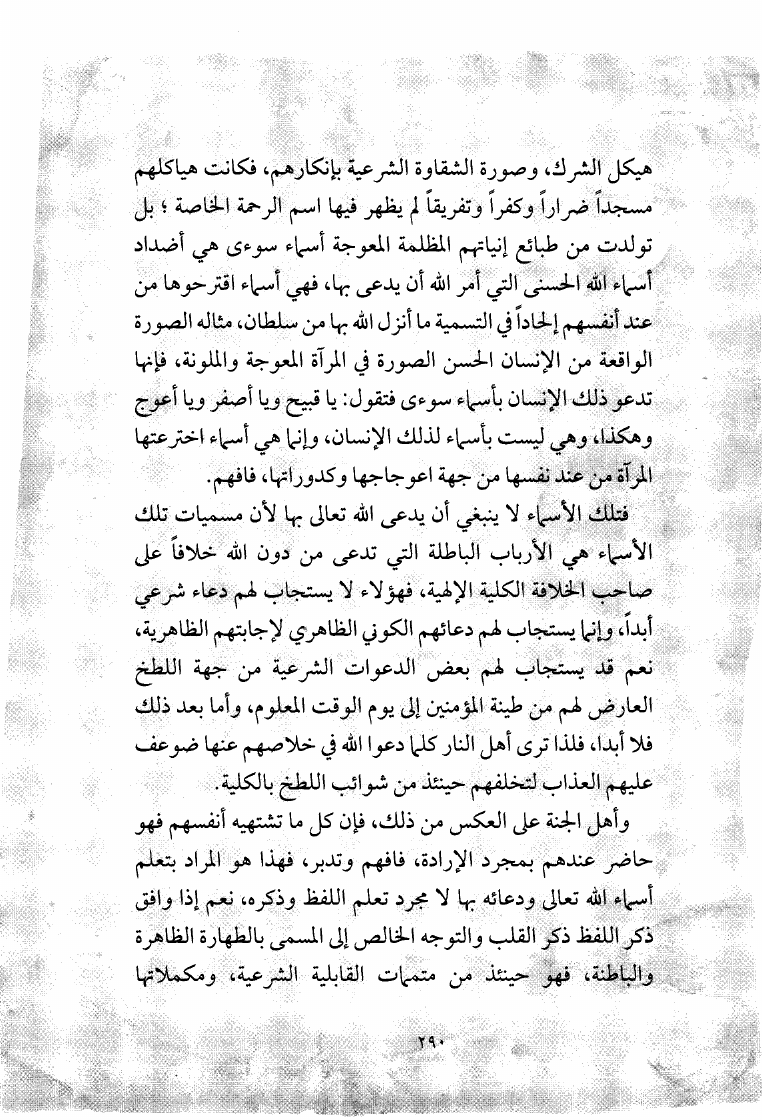 هيكل الشرك، وصورة الشقاوة الشرعية بإنكارهم، فكانت هياكلهم
مسجداً ضراراً وكفراً وتفريقاً لم يظهر فيها اسم الرحمة الخاصة ؛ بل
تولدت من طبائع إنياتهم المظلمة المعوجة أسماء سوءى هي أضداد
أسماء الله الحسنى التي أمر الله أن يدعى بها، فهي أسماء اقترحوها من
عند أنفسهم إلحاداً في التسمية ما أنزل الله بها من سلطان، مثاله الصورة
الواقعة من الإنسان الحسن الصورة في المرآة المعوجة والملونة، فإنها
تدعو ذلك الإنسان بأسماء سوءى فتقول: يا قبيح ويا أصفر ويا أعوج
وهكذا، وهي ليست بأسماء لذلك الإنسان، وإنما هي أسماء اخترعتها
المرآة من عند نفسها من جهة اعوجاجها وكدوراتها، فافهم.
فتلك الأسماء لا ينبغي أن يدعى الله تعالى بها لأن مسميات تلك
الأسماء هي الأرباب الباطلة التي تدعى من دون الله خلافاً على
صاحب الخلافة الكلية الإلهية، فهؤلاء لا يستجاب لهم دعاء شرعي
أبداً، وإنما يستجاب لهم دعائهم الكوني الظاهري لإجابتهم الظاهرية،
نعم قد يستجاب لهم بعض الدعوات الشرعية من جهة اللطخ
العارض لهم من طينة المؤمنين إلى يوم الوقت المعلوم، وأما بعد ذلك
فلا أبدا، فلذا ترى أهل النار كلما دعوا الله في خلاصهم عنها ضوعف
عليهم العذاب لتخلفهم حينئذ من شوائب اللطخ بالكلية.
وأهل الجنة على العكس من ذلك، فإن كل ما تشتهيه أنفسهم فهو
حاضر عندهم بمجرد الإرادة، فافهم وتدبر، فهذا هو المراد بتعلم
أسماء الله تعالى ودعائه بها لا مجرد تعلم اللفظ وذكره، نعم إذا وافق
ذكر اللفظ ذكر القلب والتوجه الخالص إلى المسمى بالطهارة الظاهرة
والباطنة، فهو حينئذ من متممات القابلية الشرعية، ومكملاتها
٢٩٠